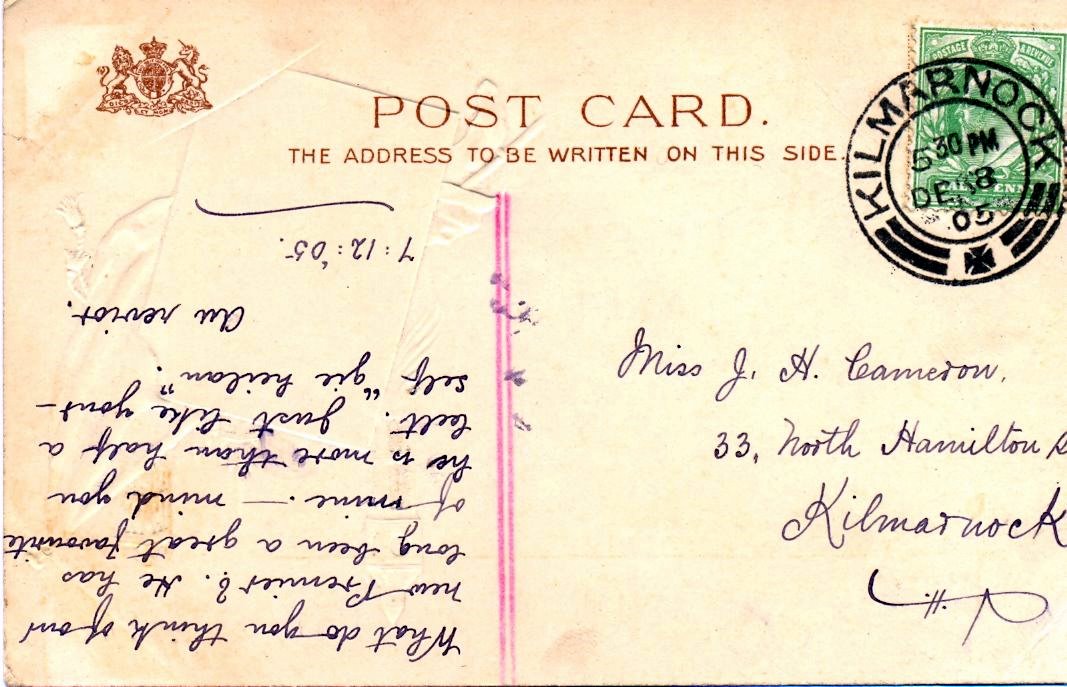 POST CARD.
THE ADDRESS TO BE WRITTEN ON THIS SIDE.
POSTAGE & REVENUE
KILMARNOCK
5 30 PM
DE 8
05
Miss J. H. Cameron,
33, North Hamilton
Kilmarnock
What do you think of our
new Premier? He has
long been a great favourite
of mine — mind you
he is more than half a
Celt. Just like your-
self "gie heilan".
Au revior.
7:12:'05.